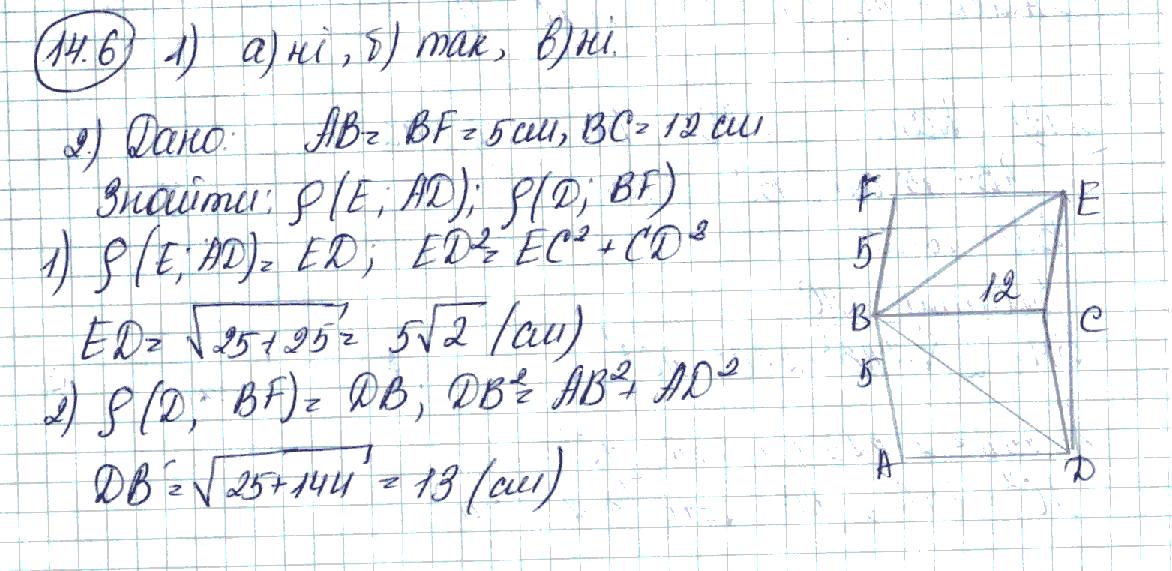 14.6 1) а) ні, б) так, в) ні.
2.) Дано: AB = BF = 5 см, BC = 12 см
Знайти: ρ(E; AD); ρ(D; BF)
1) ρ(E; AD) = ED; ED² = EC² + CD²
ED = √25+25 = 5√2 (см)
2) ρ(D; BF) = DB; DB² = AB² + AD²
DB = √25+144 = 13 (см)
F E
5
12
B C
5
A D